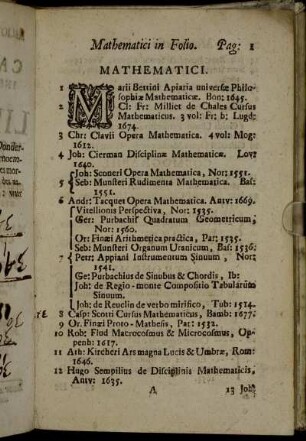 Mathematici in Folio. Pag: 1
MATHEMATICI.
1 Marii Bettini Apiaria universæ Philo-
sophiæ Mathematicæ. Bon: 1645.
2 Cl: Fr: Milliet de Chales Cursus
Mathematicus. 3 vol: Fr; b; Lugd:
1674.
3 Chr: Clavii Opera Mathematica. 4 vol: Mog:
1612.
4 Joh: Cierman Disciplinæ Mathematicæ. Lov:
1640.
Joh: Sconeri Opera Mathematica, Nor: 1551.
5 Seb: Munsteri Rudimenta Mathematica. Bas:
1551.
6 Andr: Tacquet Opera Mathematica. Antv: 1669.
Vitellionis Perspectiva, Nor: 1535.
Ger: Purbachii Quadratum Geometricum,
Nor: 1560.
Or: Finæi Arithmetica practica, Par: 1535.
Seb: Munsteri Organum Uranicum, Bas: 1536.
7 Petr: Appiani Instrumentum Sinuum, Nor:
1541.
Ge: Purbachius de Sinubus & Chordis, Ib:
Joh: de Regio-monte Compositio Tabularum
Sinuum.
Joh: de Reuclin de verbo mirifico, Tub: 1514.
8 Casp: Scotti Cursus Mathematicus, Bamb: 1677.
9 Or. Finæi Proto-Mathesis, Par: 1532.
10 Rob: Flud Macrocosmus & Microcosmus, Op-
penh: 1617.
11 Ath: Kircheri Ars magna Lucis & Umbræ, Rom:
1646.
12 Hugo Sempilius de Disciplinis Mathematicis,
Antv: 1635.
A 13 Joh: